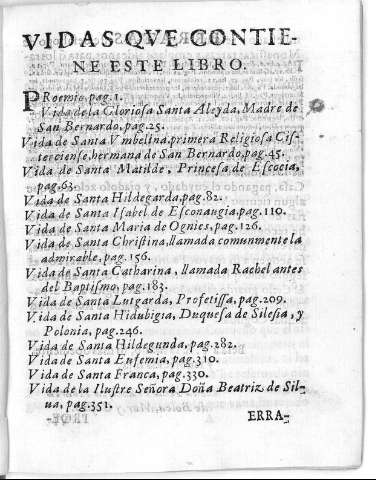 VIDAS QVE CONTIE-
NE ESTE LIBRO.
PRoemio, pag. 1.
Vida de la Gloriosa Santa Aleyda, Madre de
San Bernardo, pag. 25.
Vida de Santa Vmbelina, primera Religiosa Cis-
terciense, hermana de San Bernardo, pag. 45.
Vida de Santa Matilde, Princesa de Escocia,
pag. 63.
Vida de Santa Hildegarda, pag. 82.
Vida de Santa Isabel de Esconaugia, pag. 110.
Vida de Santa Maria de Ognies, pag. 126.
Vida de Santa Christina, llamada comunmente la
admirable, pag. 156.
Vida de Santa Catharina, llamada Rachel antes
del Baptismo, pag. 183.
Vida de Santa Lutgarda, Profetissa, pag. 209.
Vida de Santa Hidubigia, Duquesa de Silesia, y
Polonia, pag. 246.
Vida de Santa Hildegunda, pag. 282.
Vida de Santa Eufemia, pag. 310.
Vida de Santa Franca, pag. 330.
Vida de la Ilustre Señora Doña Beatriz de Sil-
ua, pag. 351.
ERRA-